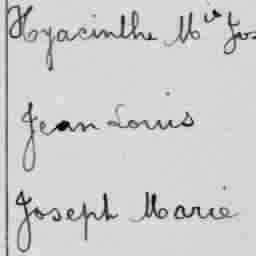 Hyacinthe Mie Jos
Jean Louis
Joseph Marie